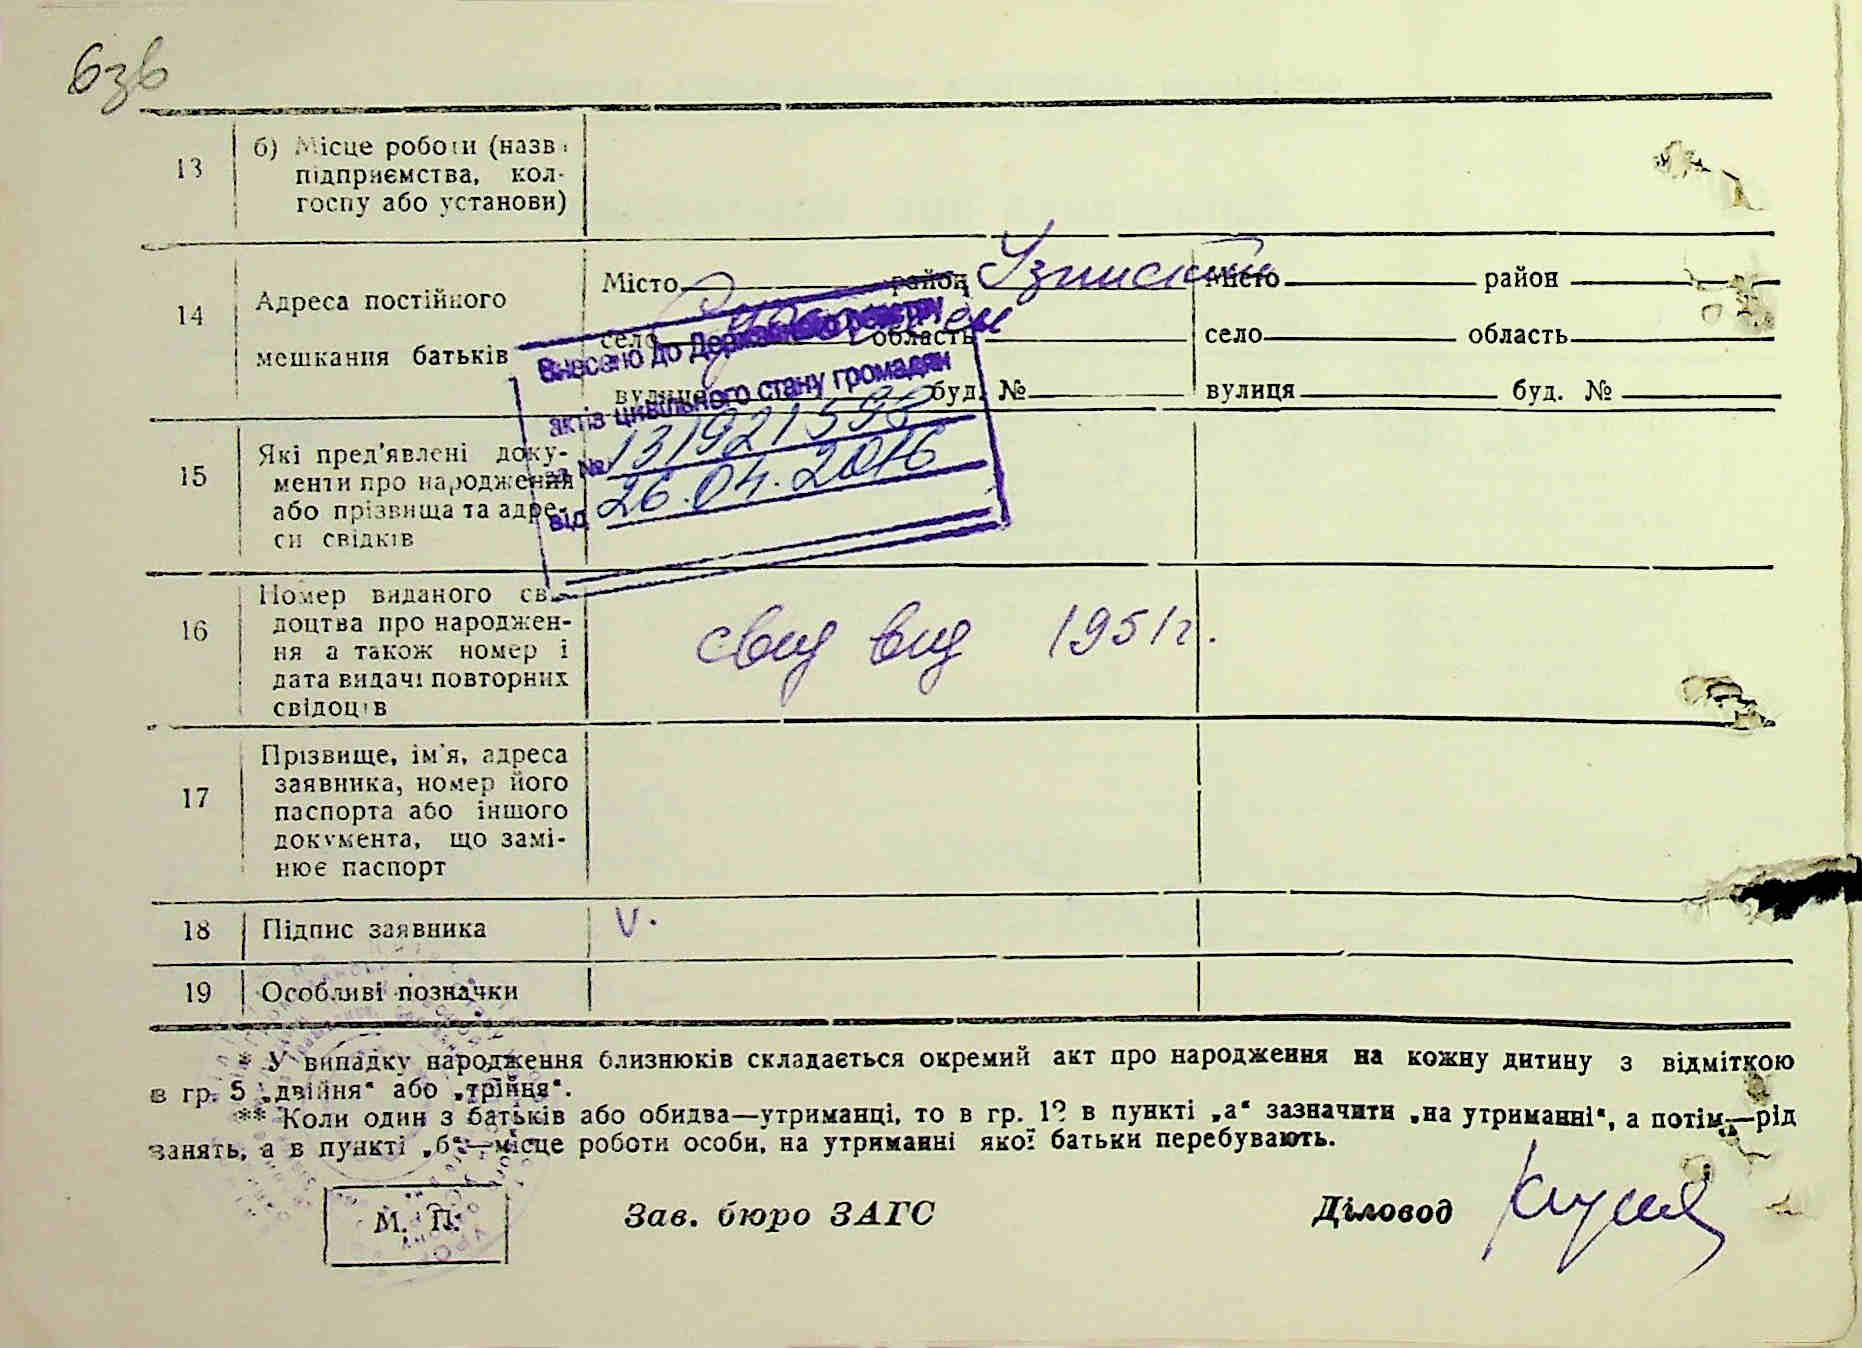 6зв
13 б) Місце роботи (назва
підприємства, кол-
госпу або установи)
14 Адреса постійного
мешкання батьків
Місто район
село область
вулиця буд. №
Місто район
село область
вулиця буд. №
Внесено до Державного реєстру
актів цивільного стану громадян
за № 131921598
від 26.04.2016
15 Які пред'явлені доку-
менти про народження
або прізвища та адре-
си свідків
16 Номер виданого сві-
доцтва про народжен-
ня а також номер і
дата видачі повторних
свідоцтв
свид вид 1951г.
17 Прізвище, ім'я, адреса
заявника, номер його
паспорта або іншого
документа, що замі-
нює паспорт
18 Підпис заявника V.
19 Особливі позначки
* У випадку народження близнюків складається окремий акт про народження на кожну дитину з відміткою
в гр. 5 „двійня“ або „трійня“.
** Коли один з батьків або обидва—утриманці, то в гр. 12 в пункті „а“ зазначити „на утриманні“, а потім—рід
занять, а в пункті „б“—місце роботи особи, на утриманні якої батьки перебувають.
М. П. Зав. бюро ЗАГС Діловод